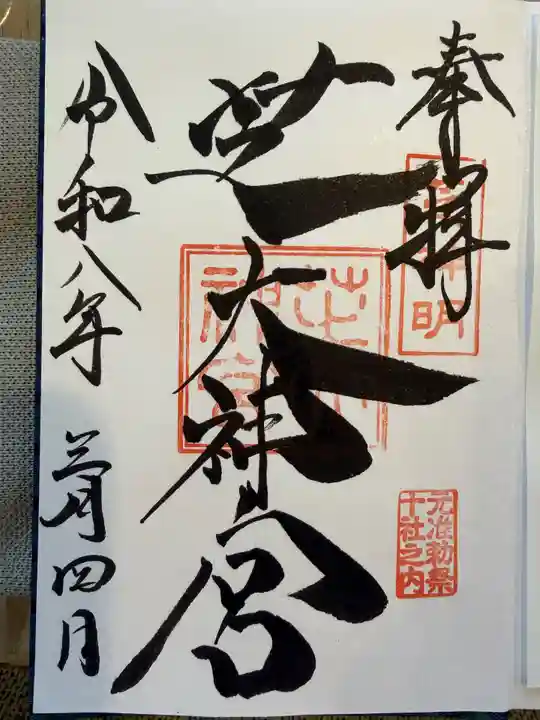 奉拝
芝大神宮
令和八年
三月四日
元准勅祭
十社之内